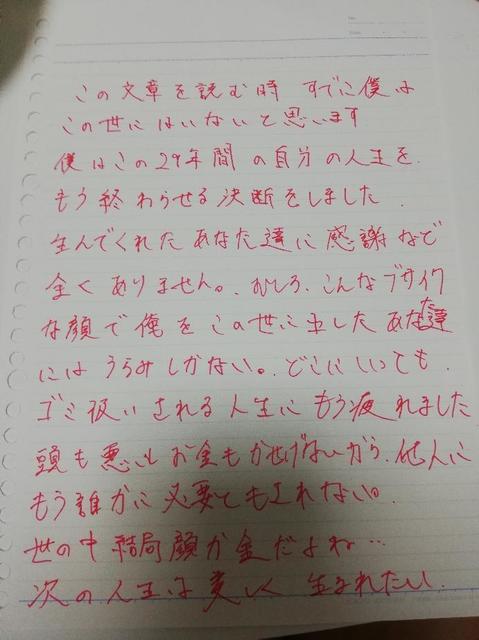 この文章を読む時 すでに僕は
この世にはいないと思います
僕はこの29年間の自分の人生を
もう終わらせる決断をしました.
生んでくれたあなた達に感謝など
全くありません。むしろ、こんなブサイク
な顔で俺をこの世に出したあなた達
にはうらみしかない。どこにいっても.
ゴミ扱いされる人生にもう疲れました
頭も悪いしお金もかせげないから、他人に
もう誰かに必要ともされない。
世の中結局顔か金だよね…
次の人生は美しく生まれたい.